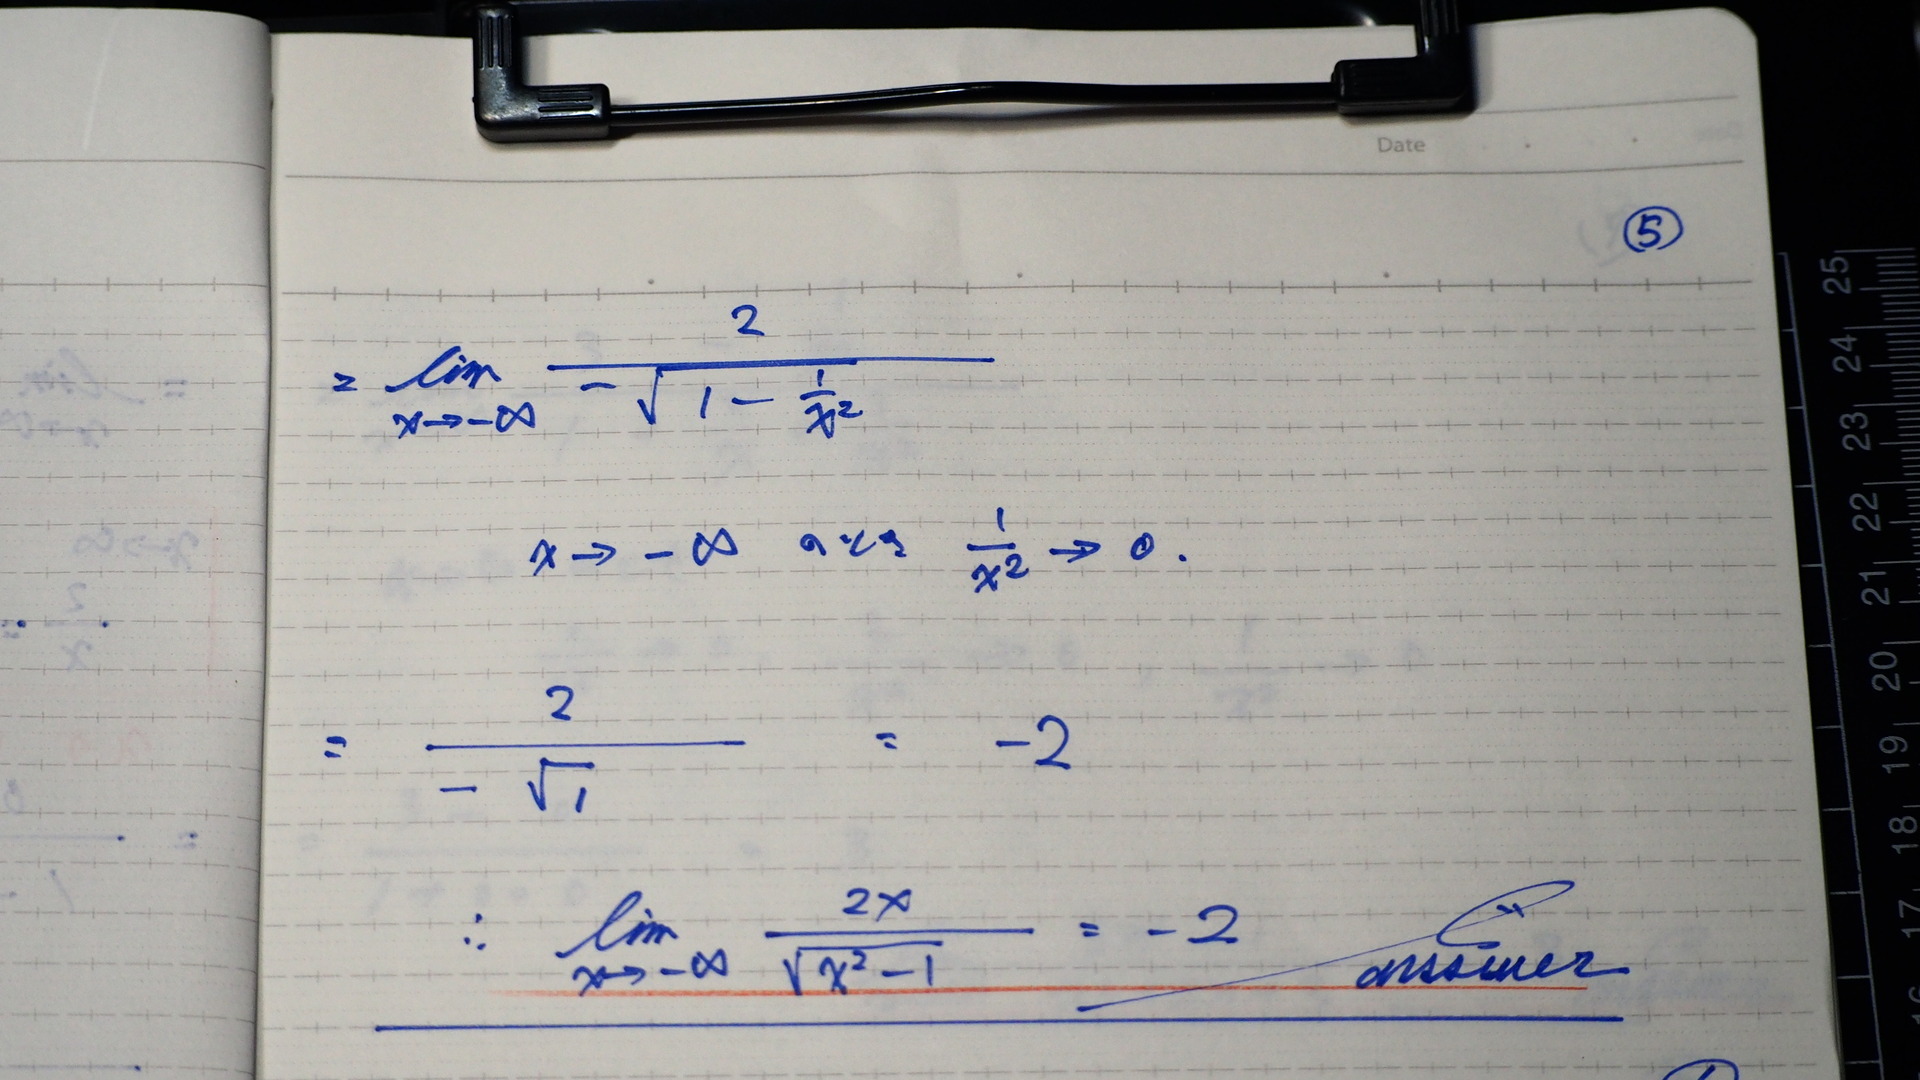 Date
⑤
= lim x→-∞ 2 / -√(1 - 1/x²)
x→ -∞ のとき 1/x² → 0.
= 2 / -√1 = -2
∴ lim x→-∞ 2x / √(x²-1) = -2 answer
25
24
23
22
21
20
19
18
17
16